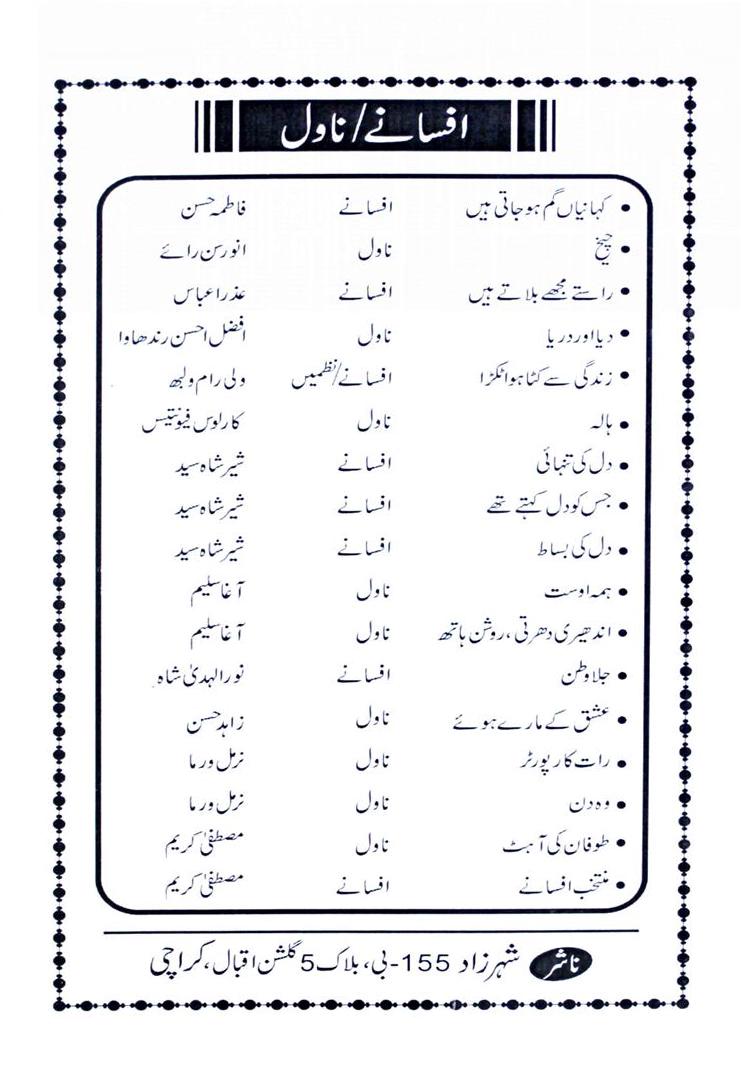 افسانے/ناول
• کہانیاں گم ہوجاتی ہیں افسانے فاطمہ حسن
• چیخ ناول انورسن رائے
• راستے مجھے بلاتے ہیں افسانے عذرا عباس
• دیا اور دریا ناول افضل احسن رندھاوا
• زندگی سے کٹا ہوا ٹکڑا افسانے/نظمیں ولی رام ولبھ
• ہالہ ناول کارلوس فیونتیس
• دل کی تنہائی افسانے شیر شاہ سید
• جس کو دل کہتے تھے افسانے شیر شاہ سید
• دل کی بساط افسانے شیر شاہ سید
• ہمہ اوست ناول آغا سلیم
• اندھیری دھرتی، روشن ہاتھ ناول آغا سلیم
• جلا وطن افسانے نور الہدیٰ شاہ
• عشق کے مارے ہوئے ناول زاہد حسن
• رات کا رپورٹر ناول نرمل ورما
• وہ دن ناول نرمل ورما
• طوفان کی آہٹ ناول مصطفیٰ کریم
• منتخب افسانے افسانے مصطفیٰ کریم
ناشر شہرزاد 155-بی، بلاک 5 گلشن اقبال، کراچی